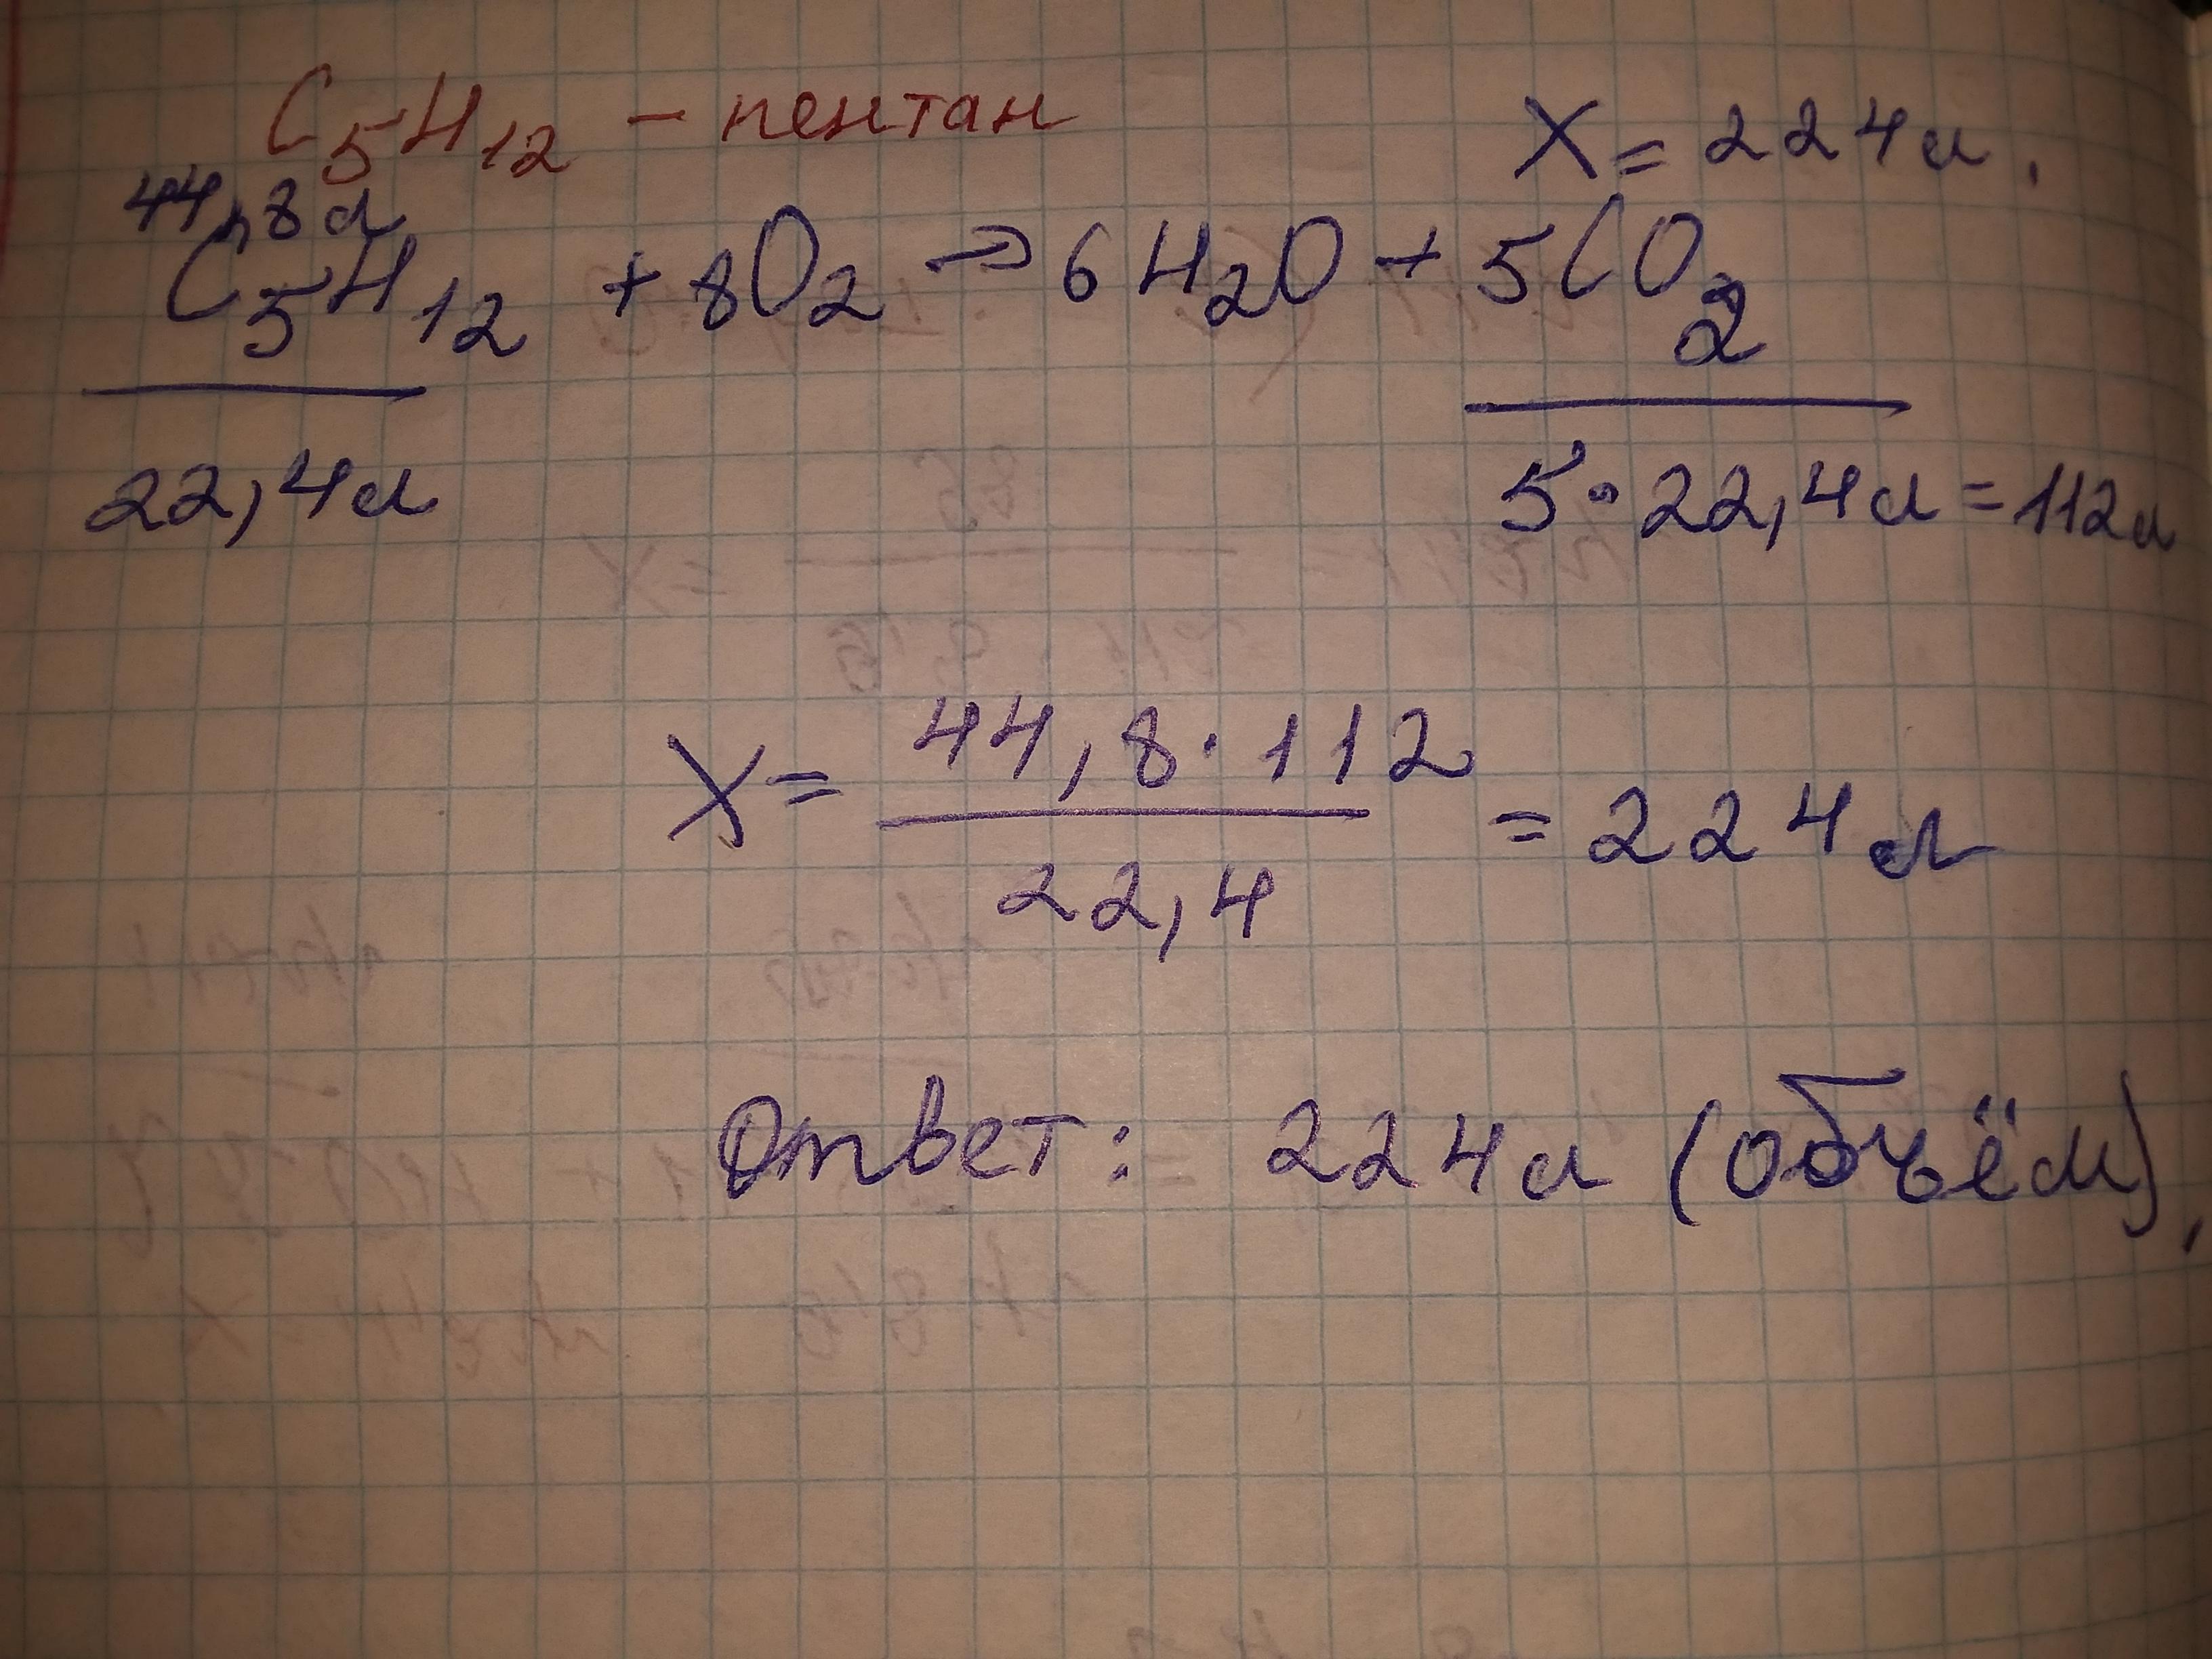 C₅H₁₂ - пентан
X = 224л.
44,8л
C₅H₁₂ + 8O₂ → 6H₂O + 5CO₂
22,4л
5 · 22,4л = 112л
X = 44,8 · 112 / 22,4 = 224л
Ответ: 224л (объём),